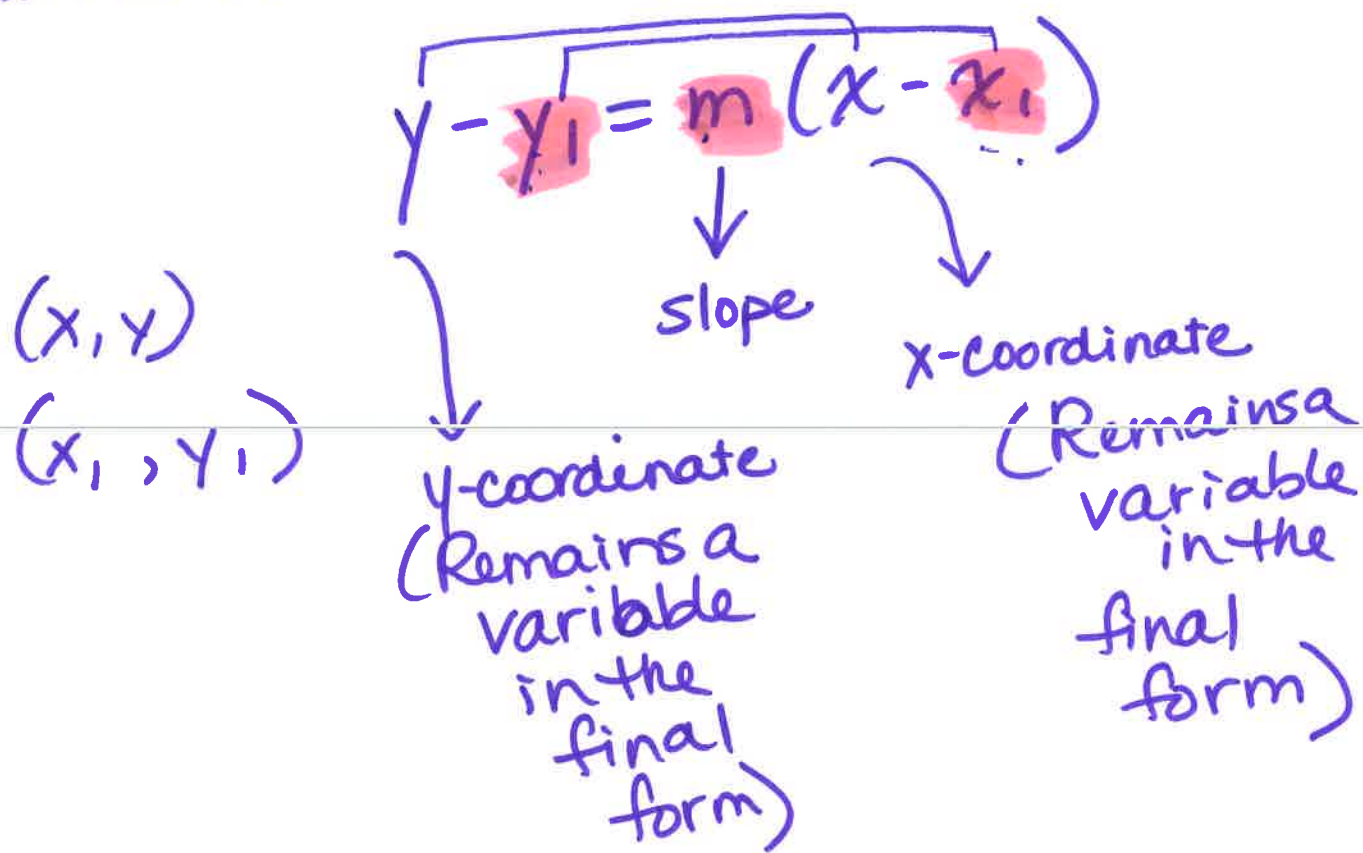 y - y₁ = m (x - x₁)
slope
(x, y)
x-coordinate
(Remains a
variable
in the
final
form)
(x₁, y₁)
y-coordinate
(Remains a
varibable
in the
final
form)